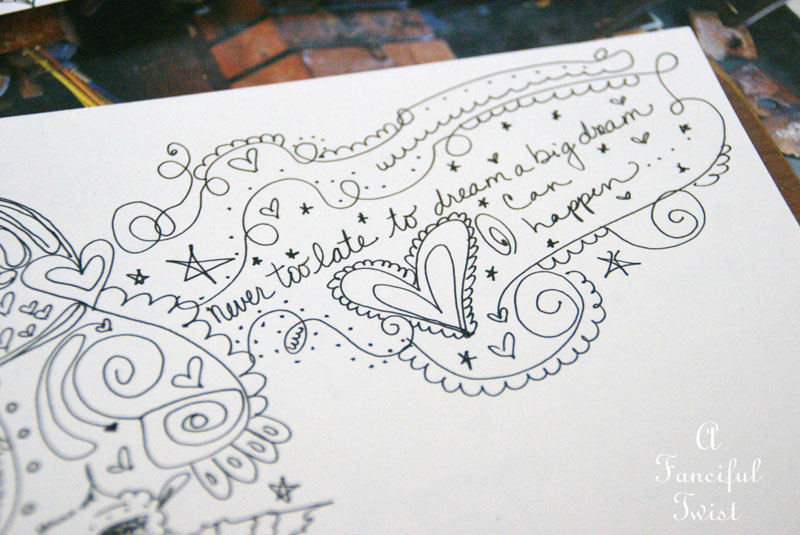 never too late to dream a big dream
can
happen....
A
Fanciful
Twist